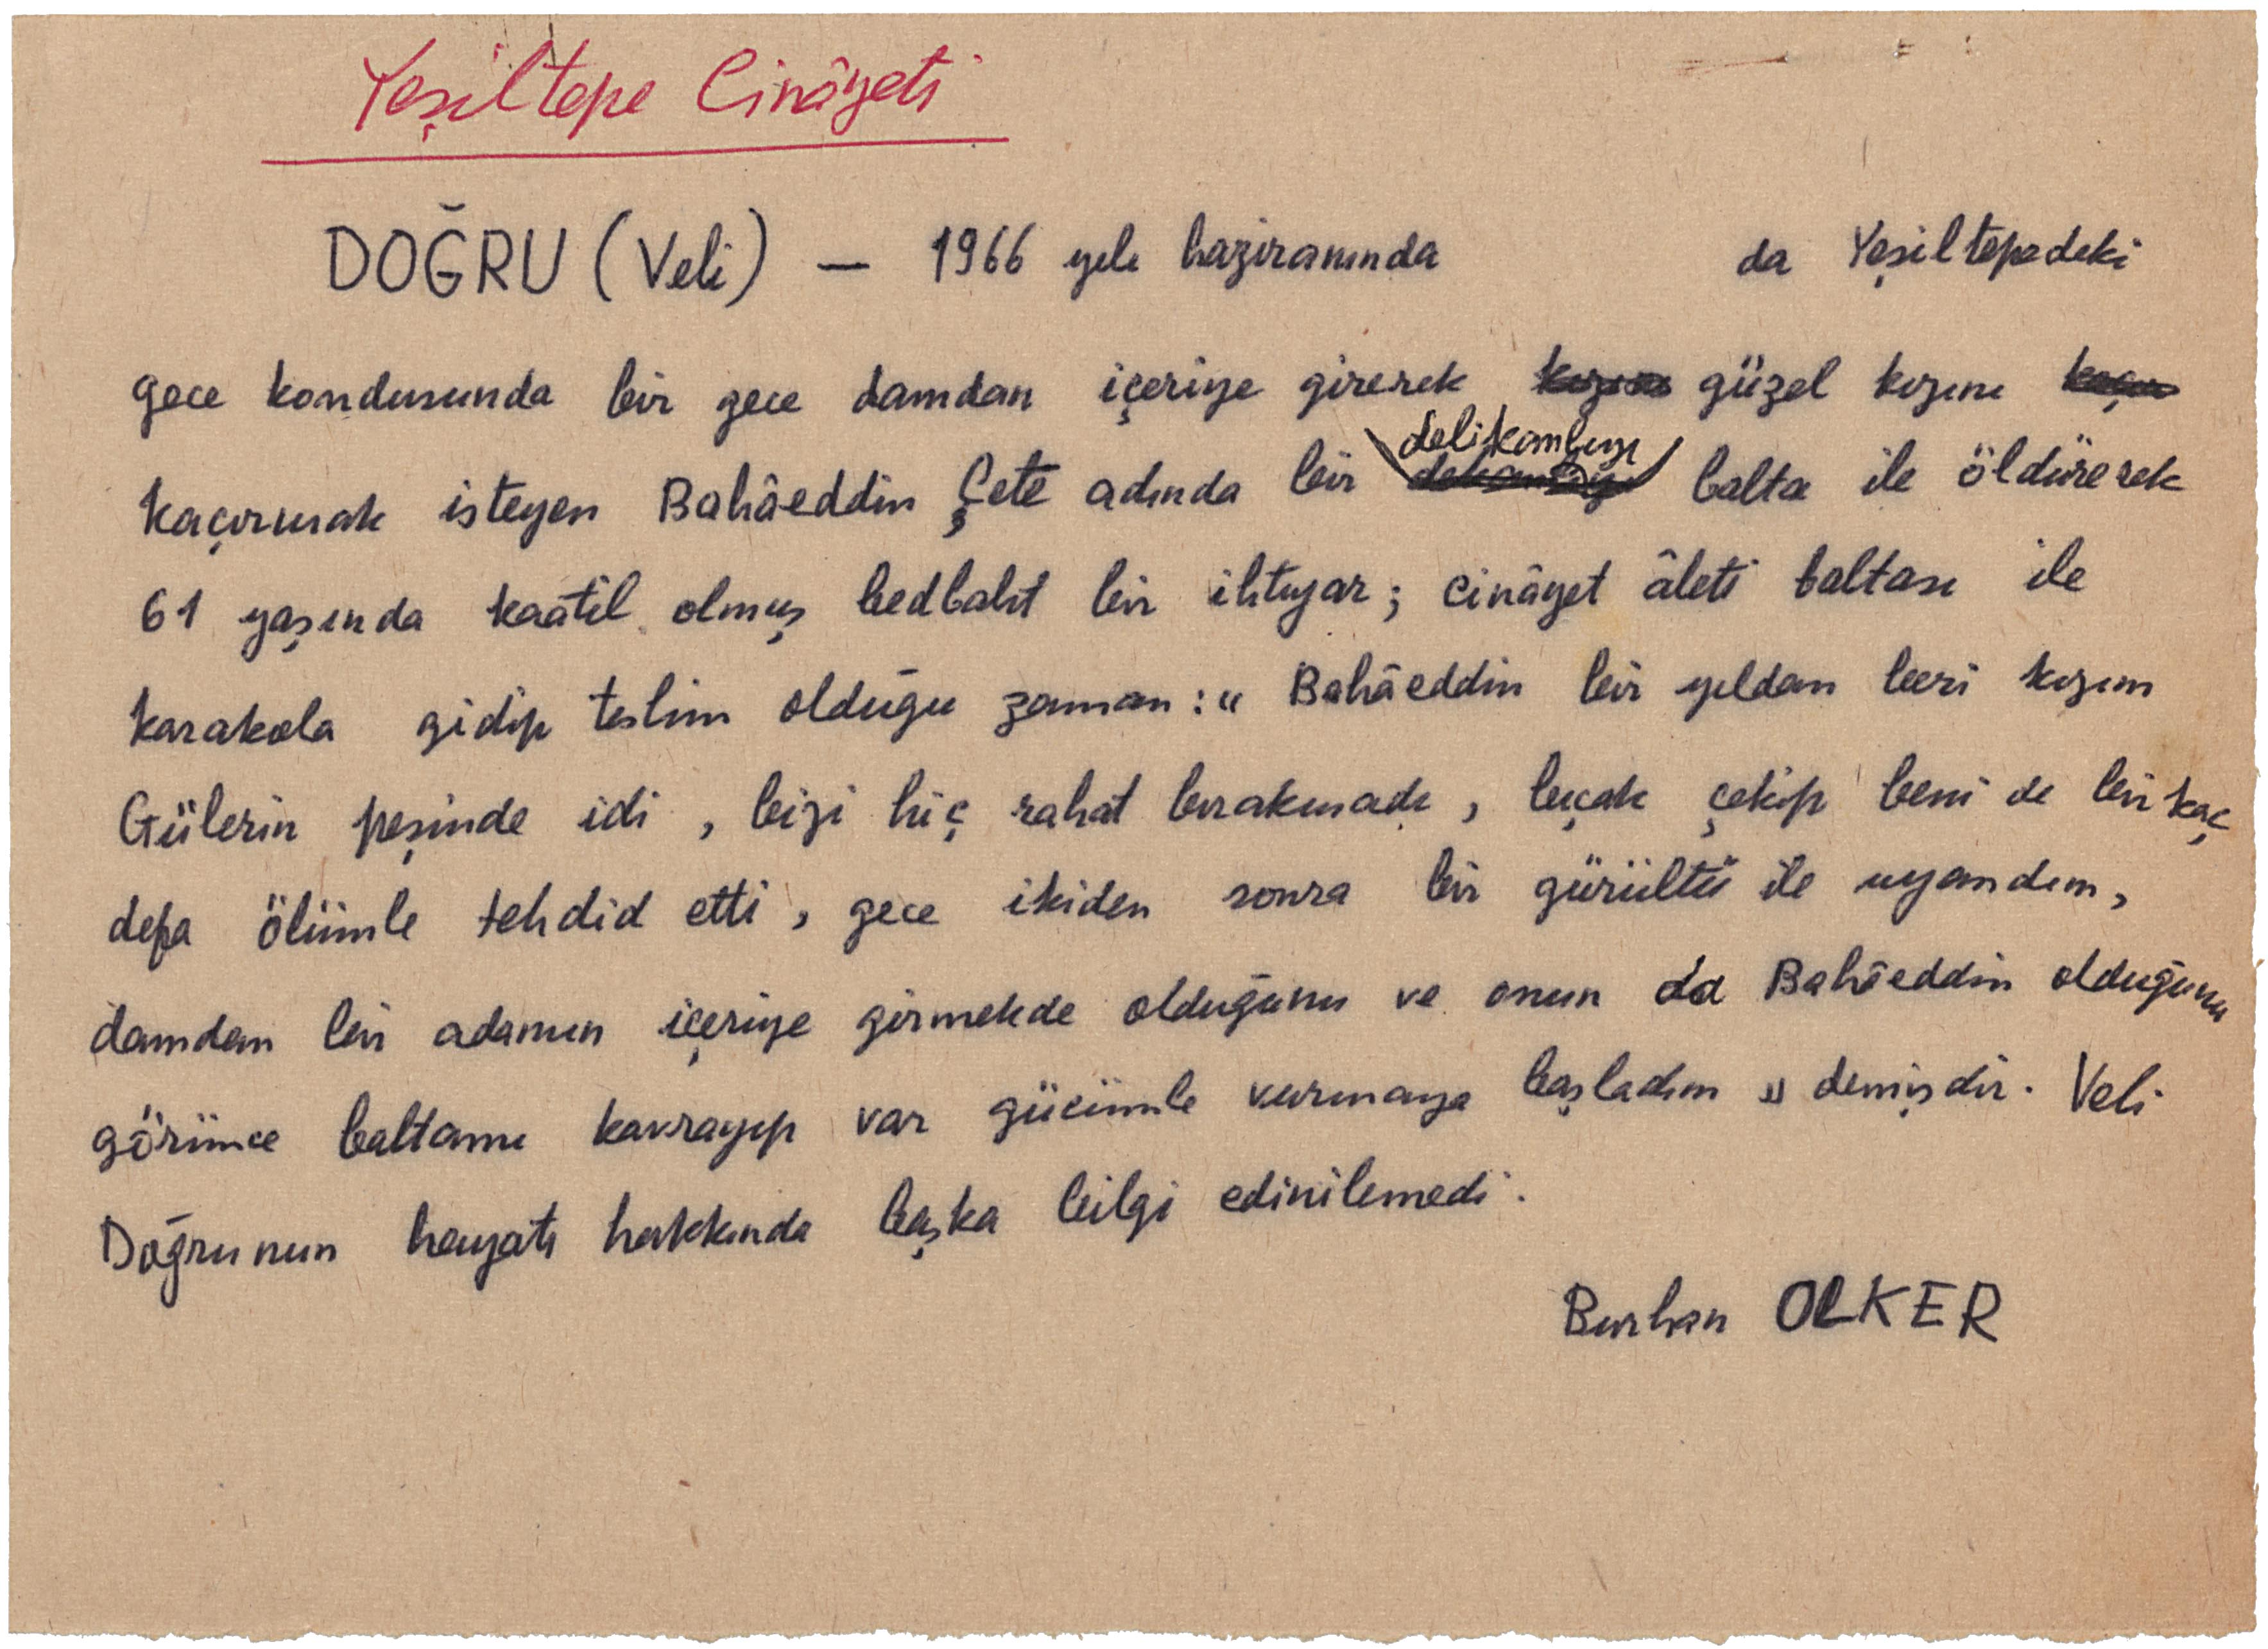 Yeşiltepe Cinâyeti
DOĞRU (Veli) — 1966 yılı haziranında da Yeşiltepedeki
gece kondusunda bir gece damdan içeriye girerek güzel kızını
kaçırmak isteyen Bahâeddin Çete adında bir delikanlıyı balta ile öldürerek
61 yaşında kaatil olmuş bedbaht bir ihtiyar; cinâyet âleti baltası ile
karakola gidip teslim olduğu zaman: "Bahâeddin bir yıldan beri kızım
Gülerin peşinde idi, bizi hiç rahat bırakmadı, bıçak çekip beni de bir kaç
defa ölümle tehdid etti, gece ikiden sonra bir gürültü ile uyandım,
damdan bir adamın içeriye girmekde olduğunu ve onun da Bahâeddin olduğunu
görünce baltamı kavrayıp var gücümle vurmaya başladım" demişdir. Veli
Doğrunun hayatı hakkında başka bilgi edinilemedi.
Burhan OLKER